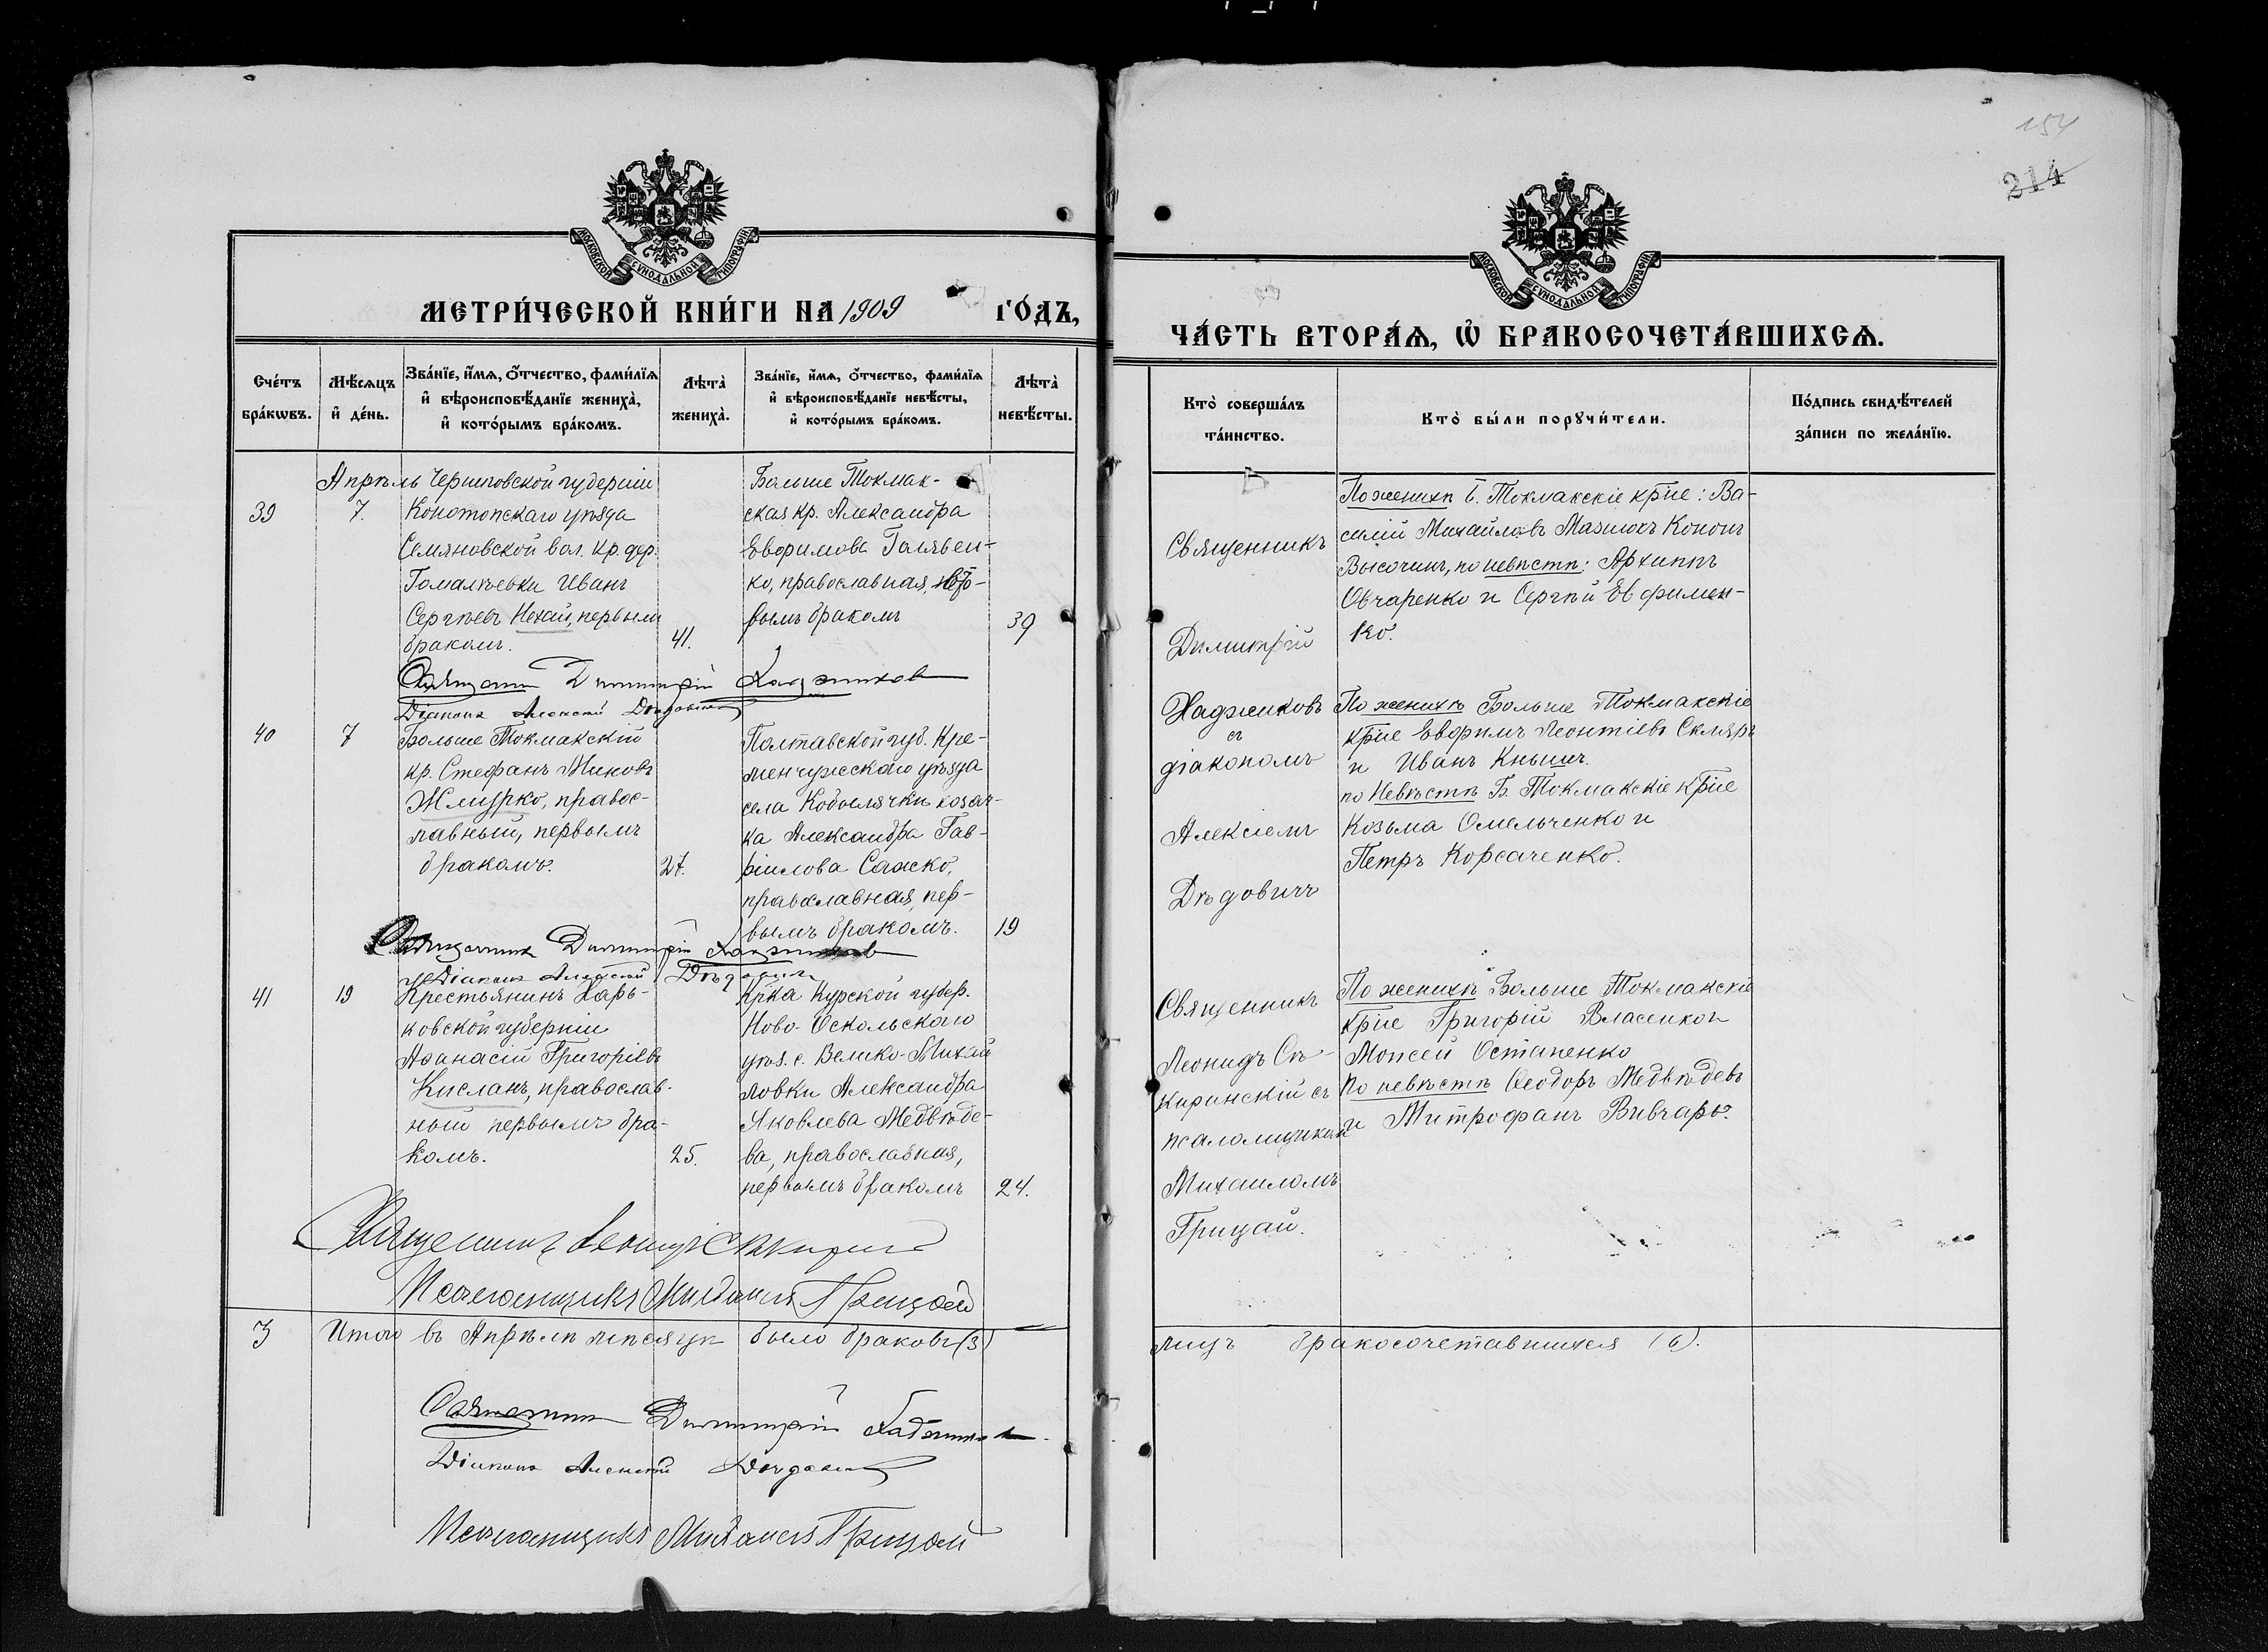 154
214
МОСКОВСКОЙ СѴНОДАЛЬНОЙ ТИПОГРАФІИ
МЕТРИ́ЧЕСКОЙ КНИ́ГИ НА 1909 ГО́ДЪ,
Сче́тъ бра́кѡвъ.
Мѣ́сяцъ и҆ де́нь.
Зва́нїе, и҆́мя, ѻ҆́тчество, фами́лїя
и҆ вѣроисповѣ́данїе жениха̀,
и҆ кото́рымъ бра́комъ.
Лѣта̀ жениха̀.
Зва́нїе, и҆́мя, ѻ҆́тчество, фами́лїя
и҆ вѣроисповѣ́данїе невѣ́сты,
и҆ кото́рымъ бра́комъ.
Лѣта̀ невѣ́сты.
39
Апрѣль
7.
Черниговской губерніи
Конотопскаго уѣзда
Семяновской вол. кр. дер.
Иванъ
Сергѣевъ Нехай, первымъ
бракомъ.
41.
Больше Токмак-
ская кр. Александра
Евфимова
ко, православная,
вымъ бракомъ
39
Священникъ Димитрій
Діаконъ Алексій Дѣдовичъ
40
7
Больше Токмакскій
кр. Стефанъ Миновъ
Жмурко, правос-
лавный, первымъ
бракомъ.
27.
Полтавской губ. Кре-
менчугскаго уѣзда
села Кобелячки козач-
ка Александра Гав-
ріилова
православная, пер-
вымъ бракомъ.
19
Священникъ Димитрій
Діаконъ Алексій Дѣдовичъ
41
19
Крестьянинъ Харь-
ковской губерніи
Аѳанасій Григоріевъ
Кисланъ, православ-
ный первымъ бра-
комъ.
25.
Кр҃ка Курской губер.
Ново-Оскольскаго
уѣз. с. Велико-Михай
ловки Александра
Яковлева Медвѣде-
ва, православная,
первымъ бракомъ
24.
Священникъ Леонидъ
Псаломщикъ Михаилъ Грицай
3
Итого въ Апрѣлѣ мѣсяцѣ было браковъ (3)
Священникъ Димитрій
Діаконъ Алексій Дѣдовичъ
Псаломщикъ Михаилъ Грицай
МОСКОВСКОЙ СѴНОДАЛЬНОЙ ТИПОГРАФІИ
ЧА́СТЬ ВТОРА́Ѧ, Ѡ҆ БРАКОСОЧЕТА́ВШИХСѦ.
Кто̀ соверша́лъ
та́инство.
Кто̀ бы́ли порꙋчи́тели.
По́дпись свидѣ́телей
за́писи по жела́нїю.
Священникъ
Димитрій
Хаджиковъ
съ
діакономъ
Алексіемъ
Дѣдовичъ
По женихѣ Б. Токмакскіе кр҃не: Ва-
силій Михайловъ Кононъ
Высочинъ, по невѣстѣ: Архипъ
Овчаренко и Сергѣй Евфимен-
ко.
По женихѣ Больше Токмакскіе
кр҃не Евфимъ Леонтіевъ Скляръ
и Иванъ Кнышъ.
по Невѣстѣ Б. Токмакскіе кр҃не
Козьма Омельченко и
Петръ Корсаченко.
Священникъ
Леонидъ Ск-
съ
псаломщикомъ
Михаиломъ
Грицай.
По женихѣ Больше Токмакскіе
кр҃не Григорій Власенко и
Моисей Остапенко
По невѣстѣ Ѳеодоръ Медвѣдевъ
и Митрофанъ Вивчарь.
лицъ бракосочетавшихся (6).